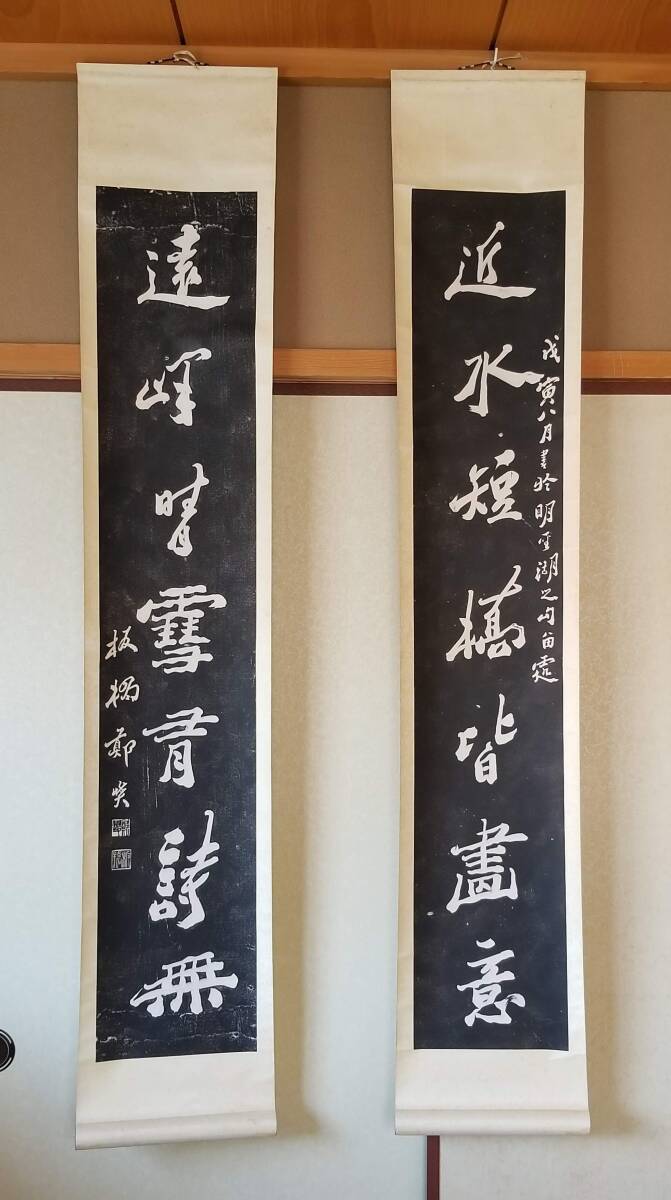 近水短橋皆畫意
戊寅八月書於明聖湖之向留處
遠峰晴雪有詩無
板橋鄭燮